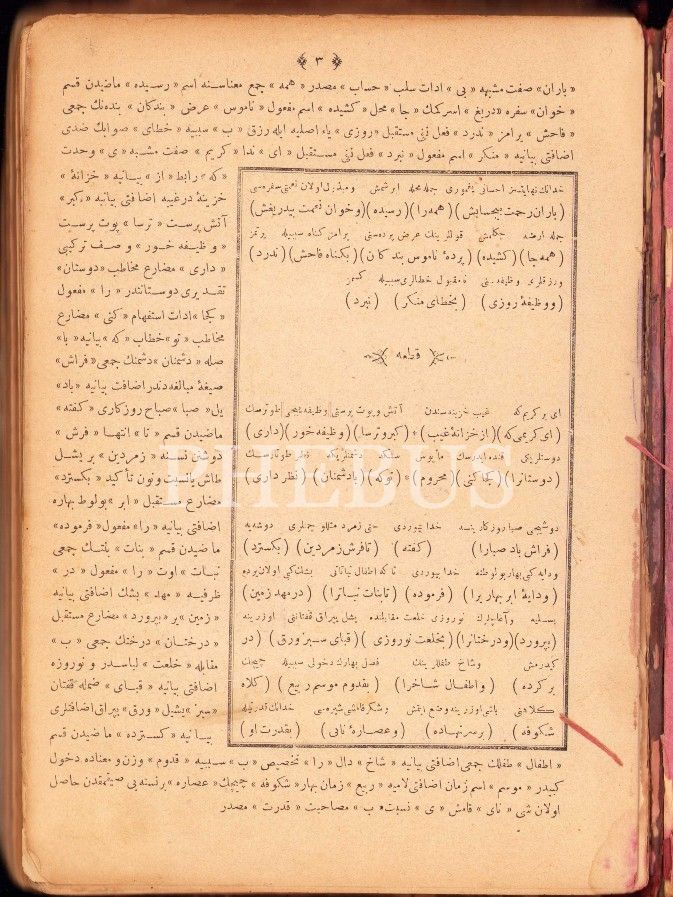 ٣
« باران » صفت مشبهه « بی » ادات سلب « حساب » مصدر « همه » جمع معناسنه اسم « رسیده » ماضیدن قسم
« خوان » سفره « دریغ » اسرکمك « جا » محل « کشیده » اسم مفعول « ناموس » عرض « بندکان » بنده‌نك جمعی
« فاحش » برامز « ندرد » فعل نفی مستقبل « روزی » یاء اصلیه ایله رزق « ب » سببیه « خطای » صوابك ضدی
اضافتی بیانیه « منکر » اسم مفعول « نبرد » فعل نفی مستقبل « ای » ندا « کریم » صفت مشبهه « ی » وحدت
« که » رابط « از » بیانیه « خزانهٔ »
خزینهٔ درغیبه اضافتی بیانیه « کبر »
آتش پرست « ترسا » پوت پرست
« وظیفه خور » وصف ترکیبی
« داری » مضارع مخاطب « دوستان »
تقدیری دوستانندر « را » مفعول
« کجا » ادات استفهام « کنی » مضارع
مخاطب « تو » خطاب « که » بیانیه « با »
صله « دشمنان » دشمنك جمعی « فراش »
صیغهٔ مبالغه‌دندر اضافت بیانیه « باد »
یل « صبا » صباح روزکاری « کفته »
ماضیدن قسم « تا » انتها « فرش »
دوشنی نسنه « زمردین » بر یشل
طاش یانسبت ونون تأکید « بکسترد »
مضارع مستقبل « ابر » بولوط بهاره
اضافتی بیانیه « را » مفعول « فرموده »
ماضیدن قسم « بنات » بنتك جمعی
نبات « اوت « را » مفعول « در »
ظرفیه « مهد » بشك اضافتی بیانیه
« زمین » یر « بپرورد » مضارع مستقبل
« درختان » درختك جمعی « ب »
مقابله « خلعت » لباسدر و نوروزه
اضافتی بیانیه « قبای » ضمله قفتان
« سبز » یشیل « ورق » یپراق اضافتلری
بیانیه « کسترده » ماضیدن قسم
خدانك نهایتسز احسانی یغموری جمله محله ایرشمش ومبذول اولان نعمتی سفره‌سی
(باران رحمت بیحسابش) (همه را) (رسیده) (وخوان نعمت بیدریغش)
جمله ارشه چکلمش قوللرینك عرض پرده‌سنی برامز کناه سببیله یرتمز
(همه جا) (کشیده) (پردهٔ ناموس بندکان) (بکناه فاحش) (ندرد)
ورزقلری وظیفه‌سنی نامقبول خطالری سببیله کسمز
(ووظیفهٔ روزی) (بخطای منکر) (نبرد)
قطعه
ای بر کریم که غیب خزینه‌سندن آتش وپوت پرستی وظیفه یییجی طوترسك
(ای کریمی که) (از خزانهٔ غیب) * (کبر وترسا) (وظیفه خور) (داری)
دوستلریکی قنده ایدرسك مأیوس سنکه دشمنلریکه نظر طوتارسك
(دوستانرا) (کجا کنی) (محروم) * (توکه) (بادشمنان) (نظر داری)
دوشیجی صبا روزکارینه خدا بیوردی حتی زمرد مثللو چمنلری دوشه‌یه
(فراش باد صبارا) (کفته) (تافرش زمردین) (بکسترد)
ودایه کبی بهار بولوطنه خدا بیوردی تاکه اطفال نباتاتی بشك کبی اولان یرده
(ودایهٔ ابر بهاریرا) (فرموده) (تابنات نباترا) (در مهد زمین)
بسلیه وآغاچلرك نوروزی خلعت مقابلنده یشل یپراق قفتاننی اوزرینه
(بپرورد) (ودرختانرا) (بخلعت نوروزی) (قبای سبز ورق) (در
کیدرمش وشاخ طفللرینك فصل بهارك دخولی سببیله چیچك
برکرده) (واطفال شاخرا) (بقدوم موسم ربیع) (کلاه
کلاهنی باشی اوزرینه وضع ایتمش وشکر قامشی شیره‌سی خدانك قدرتیله
شکوفه) (برسر نهاده) (وعصارهٔ نایی) (بقدرت او)
« اطفال » طفلك جمعی اضافتی بیانیه « شاخ » دال « را » تخصیص « ب » سببیه « قدوم » وزن ومعناده دخول
کبیدر « موسم » اسم زمان اضافتی لامیه « ربیع » زمان بهار « شکوفه » چیچك « عصاره » برنسنه‌یی صیقمقدن حاصل
اولان شی « نای » قامش « ی » نسبت « ب » مصاحبت « قدرت » مصدر
PHEBUS